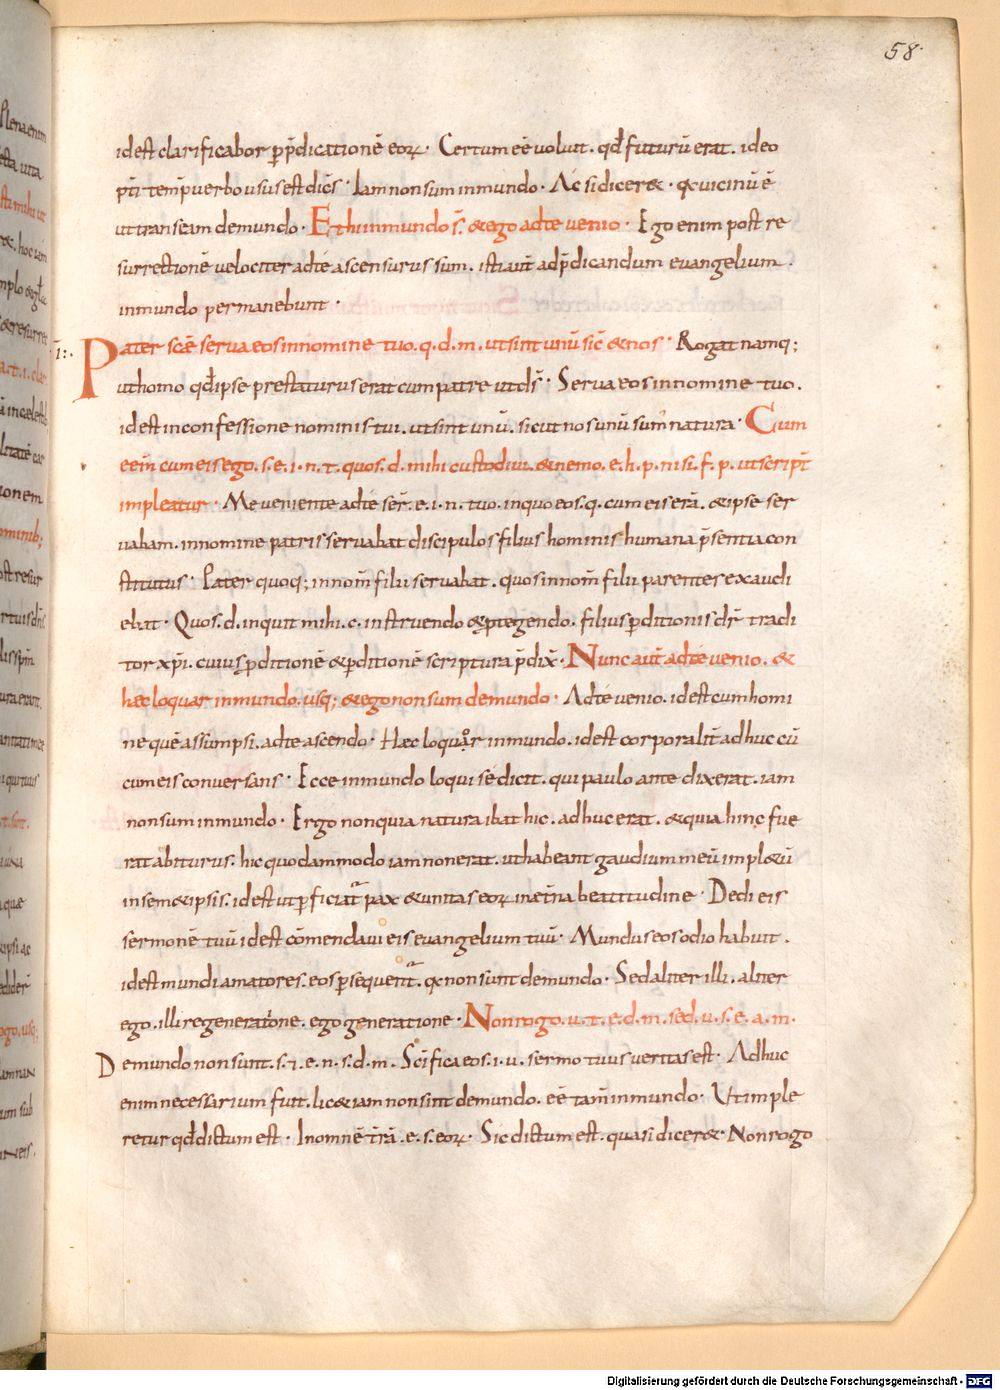 58
idest clarificabor p̱ p̄dicationē eoꝝ. Certum eē voluit. qđ futurū erat. ideo
pt̄i temp̄ verbo usus est dic̄s. Iam non sum in mundo. Ac si diceret. quia vicinū ē
ut transeam de mundo. Et hi in mundo s̄. & ego ad te venio. Ego enim post re
surrectionē velociter ad te ascensurus sum. isti aut̄ ad p̄dicandum evangelium.
in mundo permanebunt.
Pater scē serva eos in nomine tuo. q. d. m. ut sint unū sic̄ & nos. Rogat namq;
ut homo qđ ipse prestaturus erat cum patre ut d̄s. Serva eos in nomine tuo.
idest in confessione nominis tui. ut sint unū. sicut nos unū sum̄ natura. Cum
eēm cum eis ego. s. e. i. n. t. quos. d. mihi custodivi. & nemo. e. h. p. nisi. f. p. ut script̄
impleatur. Me veniente ad te ser̄. e. i. n. tuo. in quo eos. q. cum eis erā. & ipse ser
vabam. in nomine patris servabat discipulos filius hominis humana p̄sentia con
stitutus. Pater quoq; in nom̄ filii servabat. quos in nom̄ filii parentes exaudi
ebat. Quos. d. inquit mihi. c. instruendo & p̱tegendo. filius p̱ditionis dr̄ tradi
tor xp̄i. cuius p̱ditionē & p̱ditionē scriptura p̄dix̄. Nunc aut̄ ad te venio. &
haec loquar in mundo. usq; & ego non sum de mundo. Ad te venio. idest cum homi
ne quē assumpsi. ad te ascendo. Haec loquor in mundo. idest corporalit̄ adhuc cū
cum eis conversans. Ecce in mundo loqui se dicit. qui paulo ante dixerat. iam
non sum in mundo. Ergo non quia natura ibat hic. adhuc erat. & quia hinc fue
rat abiturus. hic quodammodo iam non erat. ut habeant gaudium meū impl&ū
in sem&ipsis. idest ut p̱ficiat̄ pax & unitas eoꝝ in aet̄na beatitudine. Dedi eis
sermonē tuū idest cōmendavi eis evangelium tuū. Mundus eos odio habuit.
idest mundi amatores. eos p̱sequent̄. quia non sunt de mundo. Sed aliter illi. aliter
ego. illi regeneratione. ego generatione. Non rogo. u. t. e. d. m. sed. u. s. e. a. m.
De mundo non sunt. s. i. e. n. s. d. m. Sc̄ifica eos. i. u. sermo tuus veritas est. Adhuc
enim necessarium fuit. lic& iam non sint de mundo. eē tam̄ in mundo. Ut imple
retur qđ dictum est. In omnē t̄rā. e. s. eoꝝ. Sic dictum est. quasi dicer&. Non rogo
Digitalisierung gefördert durch die Deutsche Forschungsgemeinschaft - DFG